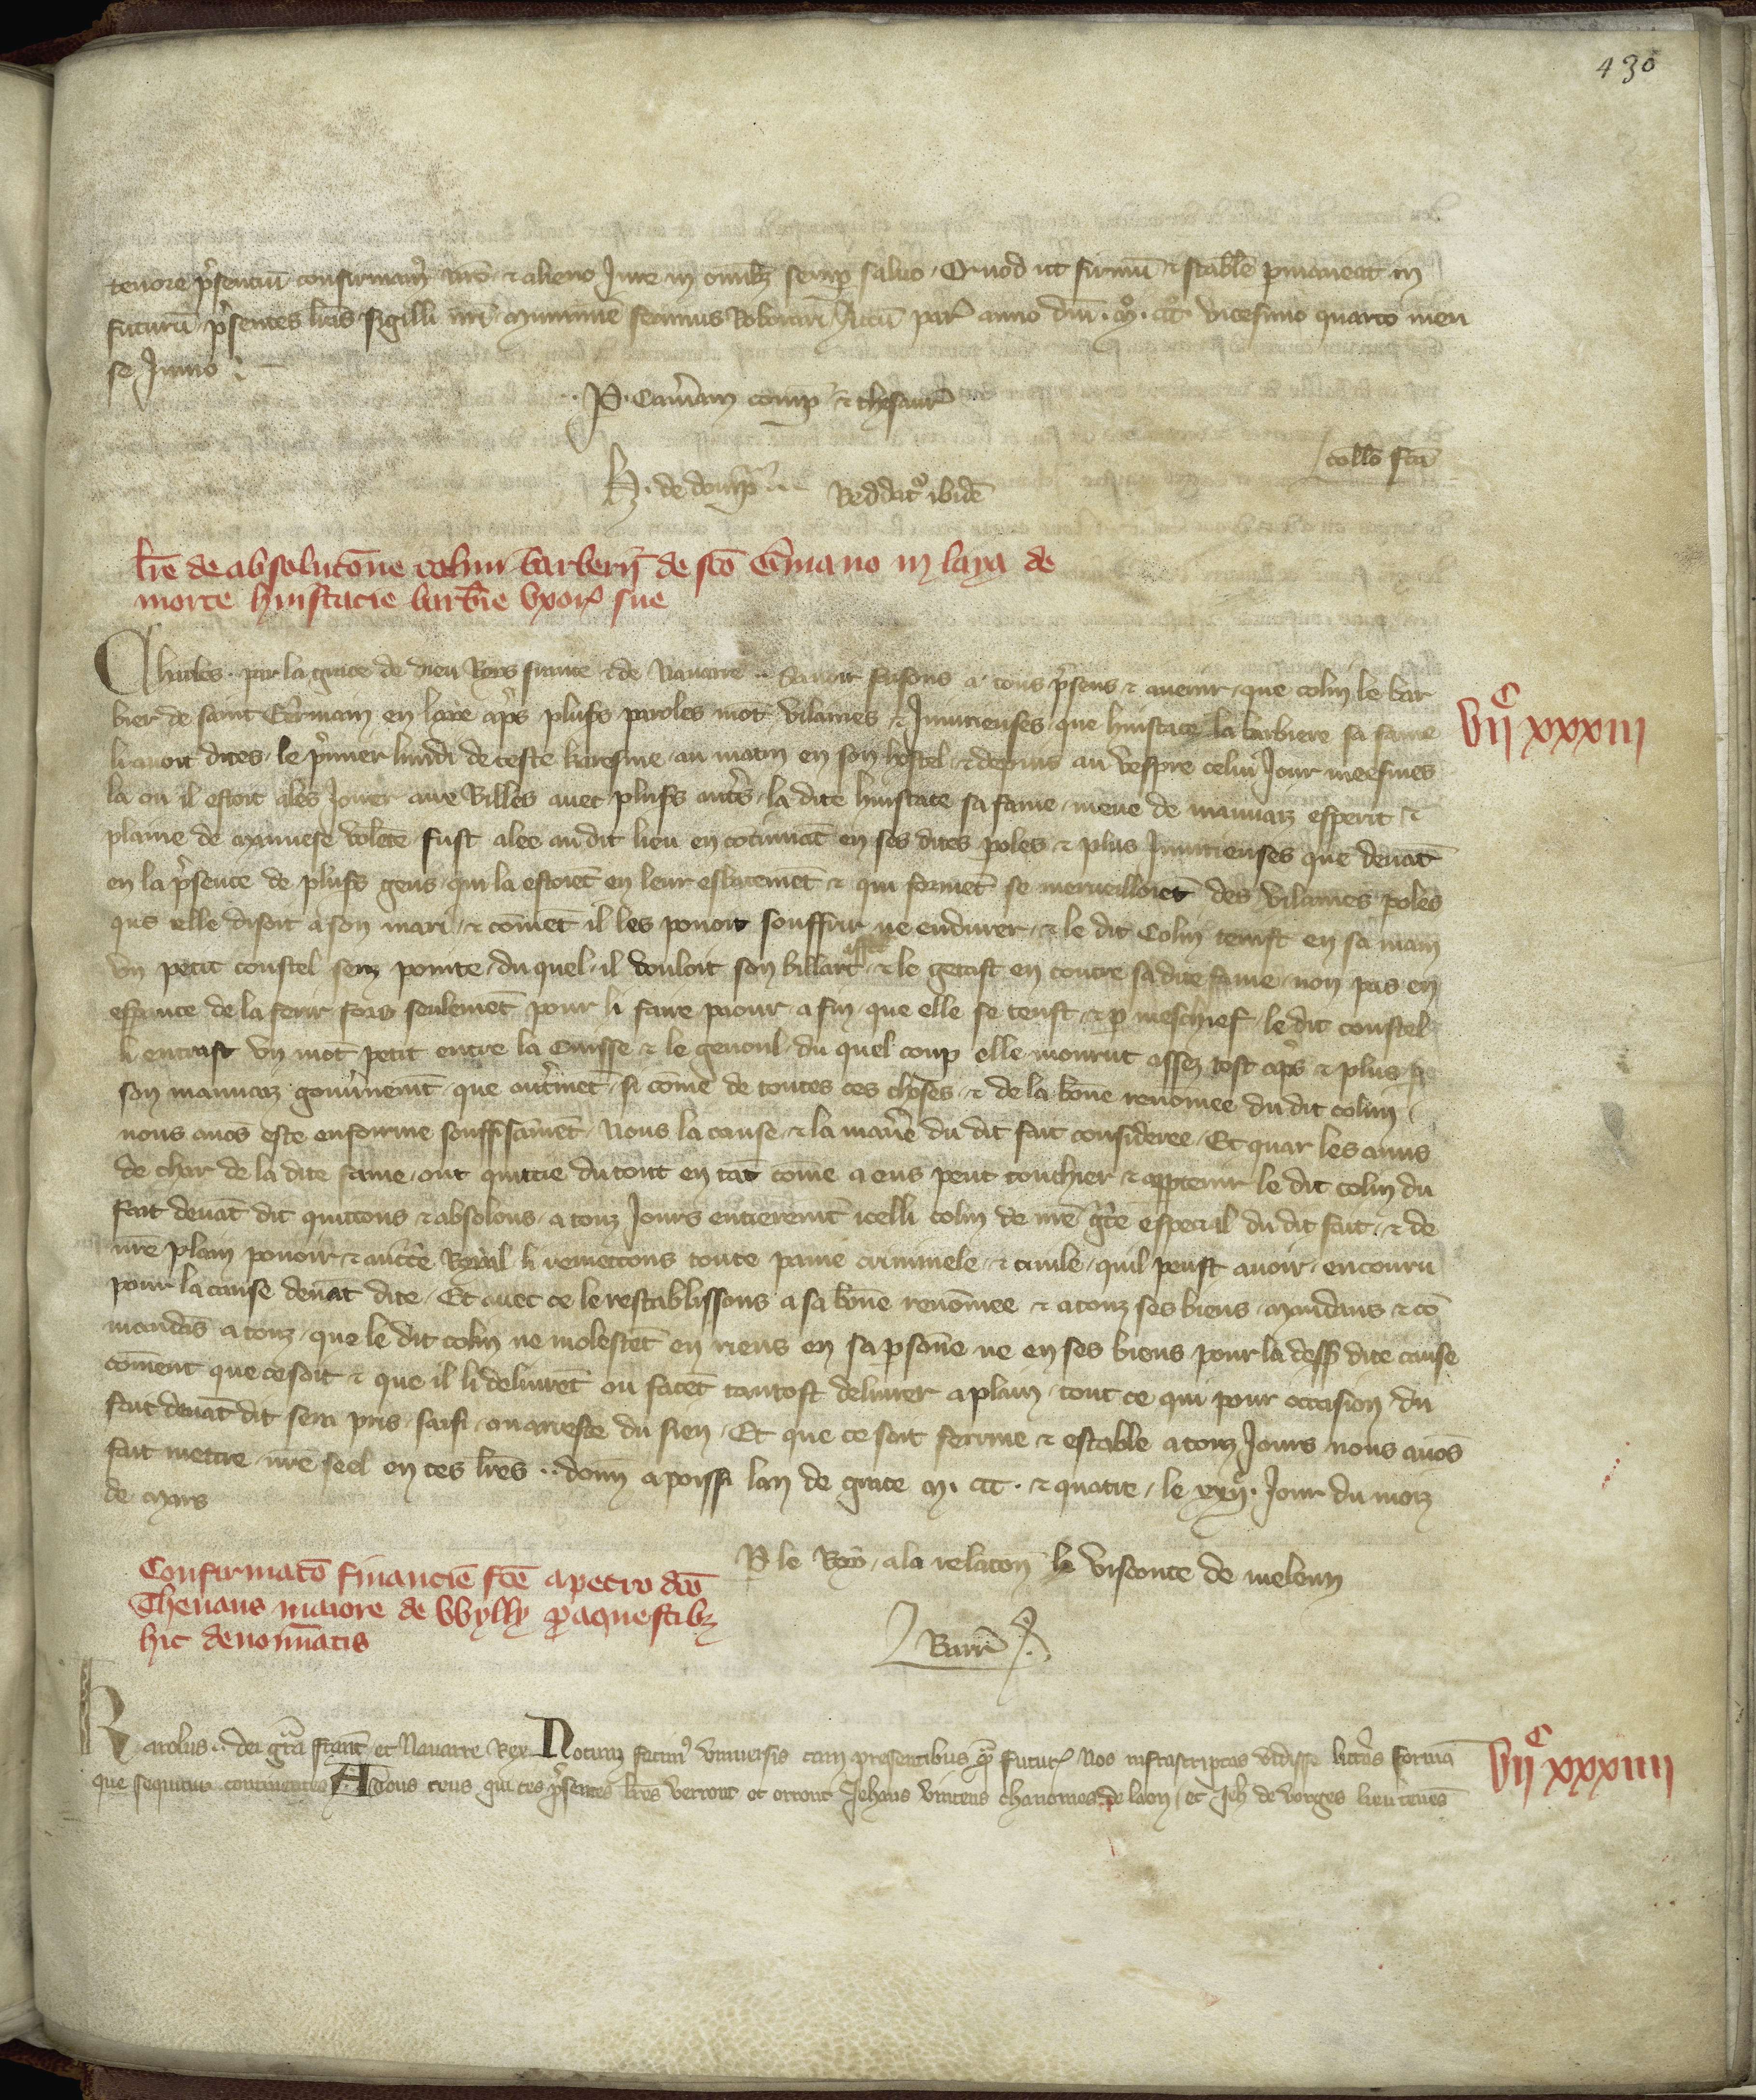 430
tenore p̃sentiũ confirmam᷒ nr̃o et alieno Iure in omib; semp salvo. Quod ut firmũ et stabile p̱maneat in
futurũ p̃sentes litt̃as sigilli nr̃i munimine fecimus Roborari. Actũ par̃ anno dñi. Mº. CCCº. vicesimo quarto men
se Junio
P. Cam̃am comp̃ et thesaur̃
coll̃o fc̃a
H. de domp̃ Reddit᷒ ibidẽ
lr̃e de absolutõne colini barberij de sc̃o Gr̃mano in laya de
morte huistacie barb̃ie uxor̃ sue
Charles par la grace de dieu Roys france et de Navarre. Savoir faisons a tous p̃sens et avenir que colin le bar
bier de saint Germain en laye ap̃s plus̃s paroles mot̃ vilaines et Iniurienses que huistace la barbiere sa fame
li avoit dites le p̃mier lundi de ceste karesme au matin en son hostel et depuis au vespre celui Jour meesmes
la ou il estoit alés Jouer aus billes avec plus̃s autr̃s la dite huistace sa fame meue de mauvaiz esperit et
plaine de mauvese volẽte fust alee audit lieu en cõtinuãt en ses dites poles et plus Iniurienses que devãt
en la p̃sence de plus̃s gens qui la estoiẽt en leur esbatemẽt et qui formẽt se merveilloiẽt des vilaines poles
que elle disoit a son mari et cõmẽt il les povoit souffrir ne endurer et le dit Colin tenist en sa main
un petit coustel senz pointe du quel il vouloit son billart et le getast en contre sa dite fame non pas en
esp̱ance de la ferir fors seulemẽt pour li faire paour a fin que elle se teust et p̱ meschief le dit coustel
li entrast un mot petit entre la cuisse et le genoul du quel coup elle mourut assez tost ap̃s et plus p̱
son mauvaiz gouv̾nemẽt que autr̃mẽt si cõme de toutes ces choses et de la bõne renõmee du dit colin
nous avõs este enfourme souffisãmẽt Nous la cause et la maniẽ du dit fait consideree Et quar les amis
de char de la dite fame ont quittie du tout en tãt cõme a eus peut touchier et app̱tenir le dit colin du
fait devãt dit quittons et absolons a touz Jours entieremẽt icelli colin de nr̃e gr̃ce especial du dit fait et de
nr̃e plain povoir et auct̃e Royal li remettons toute paine criminele et civile quil peust avoir encouru
pour la cause devãt dite Et avec ce le restablissons a sa bõne renõmee et a touz ses biens Mandans et cõ
mandãs a touz que le dit colin ne molestẽt en riens en sa p̱sõne ne en ses biens pour la dess̃ dite cause
cõment que ce soit et que il li delivrẽt ou facẽt tantost delivrer a plain tout ce qui pour occasion du
fait devãt dit sera pris saisi ou arreste du sien Et que ce soit ferme et estable a touz Jours nous avõs
fait mettre nr̃e seel en ces lr̃es. donñ a poissi lan de grace M. CCC. et quatre le xxij. Jour du moiz
de mars
vijᶜ xxxiij
P̱ le Roy a la relaton le visconte de meleun
Barr̃
Confirmatõ financie fc̃e a petro dc̃o
Thenaus maiore de Wylly p̱ aquestib;
hic denominatis
Karolus dei gr̃a franc̃ et Navarre Rex Notum facim᷒ universis tam presentibus q̃ futur̃ Nos infrascriptas vidisse litt̃as formã
que sequitur continentes A tous ceus qui ces p̃sentes lr̃es verront et orront Jehans chanoines de laon et Jeh̃ de vorges lieutenẽs
vijᶜ xxxiiij